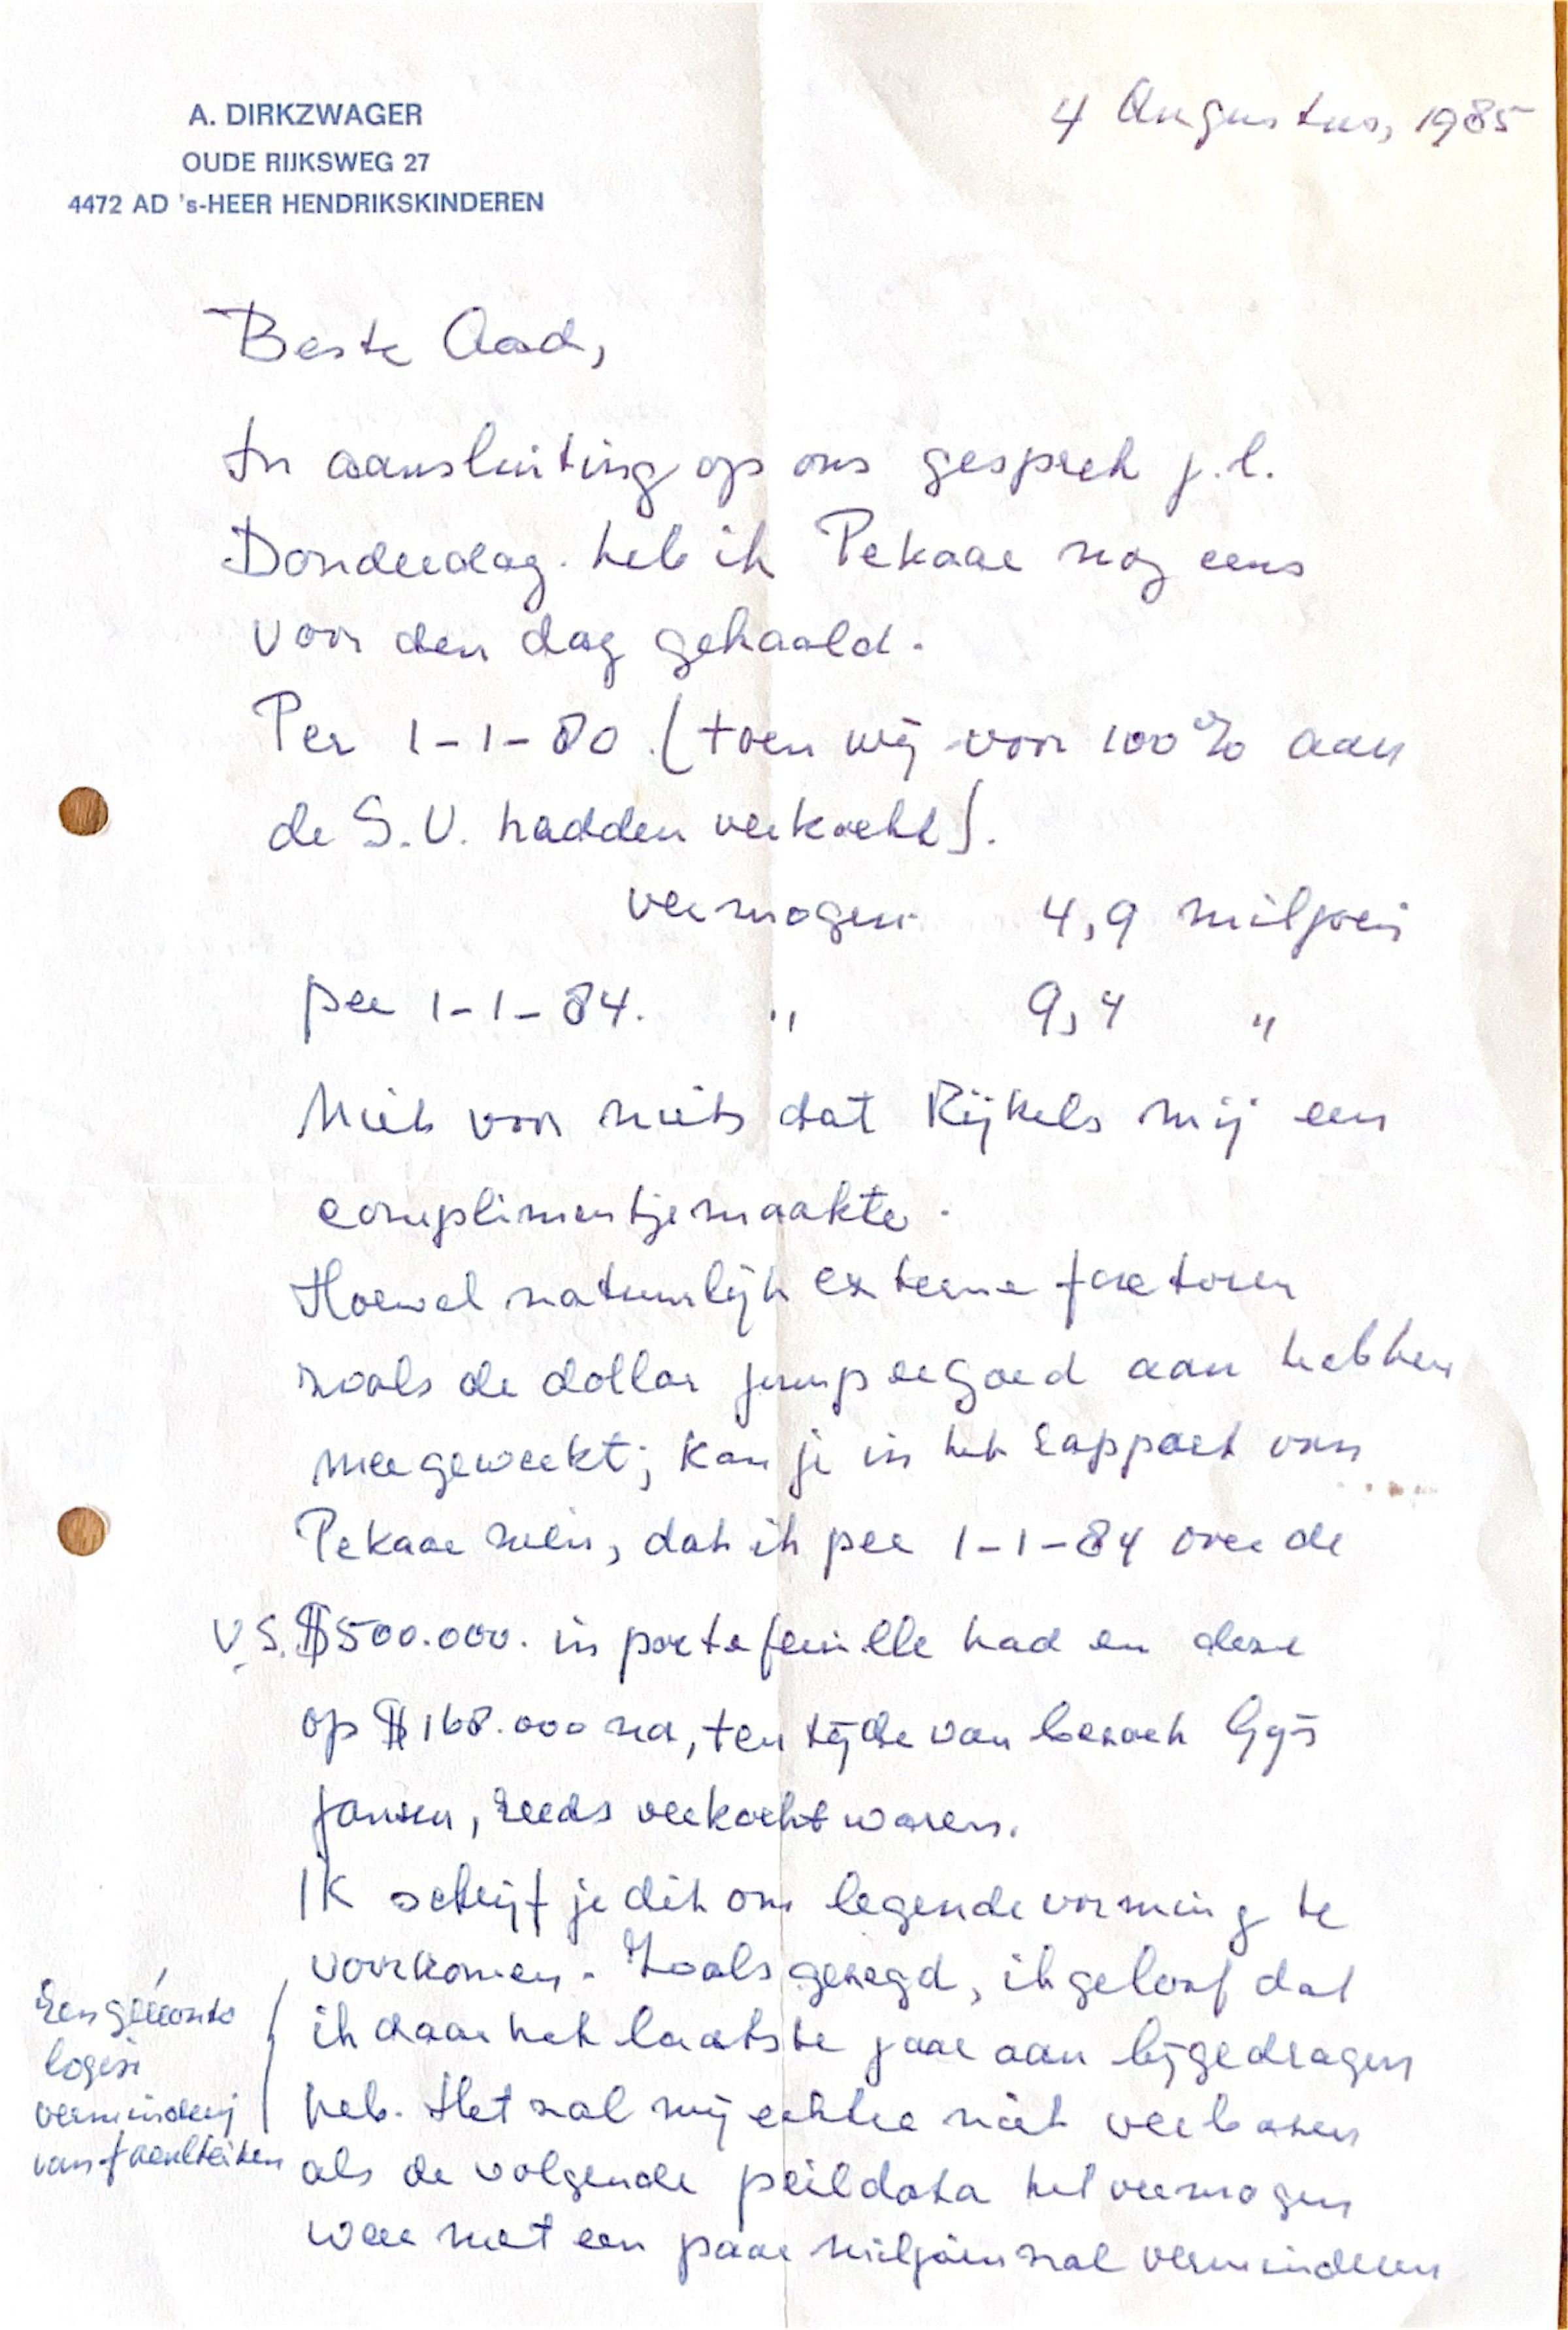 A. DIRKZWAGER
OUDE RIJKSWEG 27
4472 AD 's-HEER HENDRIKSKINDEREN
4 Augustus, 1985
Beste Aad,
In aansluiting op ons gesprek j.l.
Donderdag. heb ik Pekaar nog eens
voor den dag gehaald.
Per 1-1-80 (toen wij voor 100% aan
de S.V. hadden verkocht).
vermogen 4,9 miljoen
per 1-1-84. " 9,4 "
Niet voor niets dat Rijkels mij een
complimentje maakte.
Hoewel natuurlijk externe factoren
zoals de dollar goed aan hebben
meegewerkt; kan je in het rapport van
Pekaar zien, dat ik per 1-1-84 over de
V.S. $500.000. in portefeuille had en deze
op $168.000 na, ten tijde van bezoek Gijs
Jansen, reeds verkocht waren.
Ik schrijf je dit om legendevorming te
voorkomen. Zoals gezegd, ik geloof dat
ik daar het laatste jaar aan bijgedragen
heb. Het zal mij echter niet verbazen
als de volgende peildata het vermogen
weer met een paar miljoen zal verminderen
Een géronto
logise
vermindering
van faculteiten